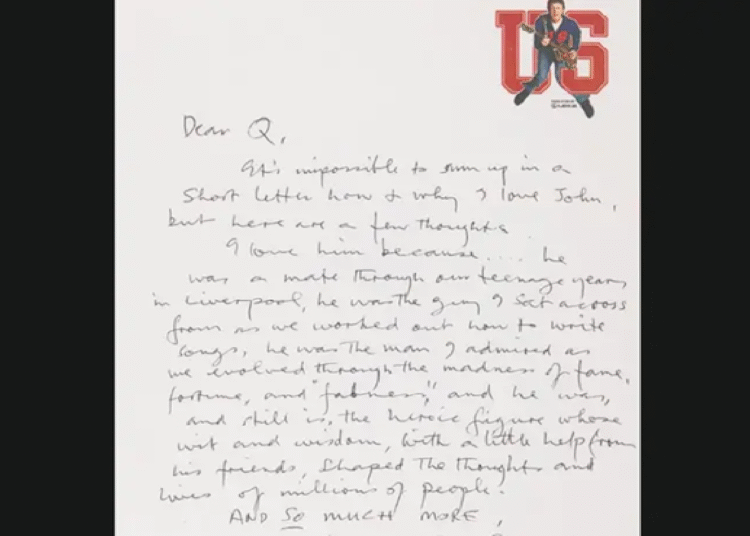 US
Dear Q,
It's impossible to sum up in a
short letter how & why I love John,
but here are a few thoughts
I love him because.... he
was a mate through our teenage years
in Liverpool, he was the guy I sat across
from as we worked out how to write
songs, he was the man I admired as
we evolved through the madness of fame,
fortune, and "fabness," and he was,
and still is, the heroic figure whose
wit and wisdom, with a little help from
his friends, shaped the thoughts and
lives of millions of people.
AND SO MUCH MORE,